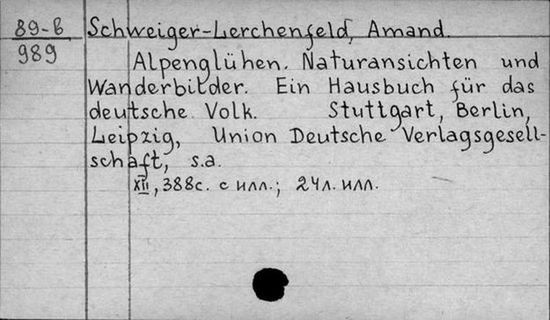 89-в Schweiger-Lerchenfeld, Amand.
989
Alpenglühen. Naturansichten und
Wanderbilder. Ein Hausbuch für das
deutsche Volk. Stuttgart, Berlin,
Leipzig, Union Deutsche Verlagsgesell-
schaft, s.a.
XII, 388с. с илл.; 24л. илл.